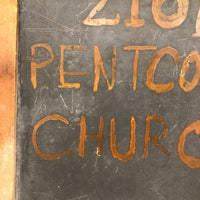 ZION
PENTCO
CHURC